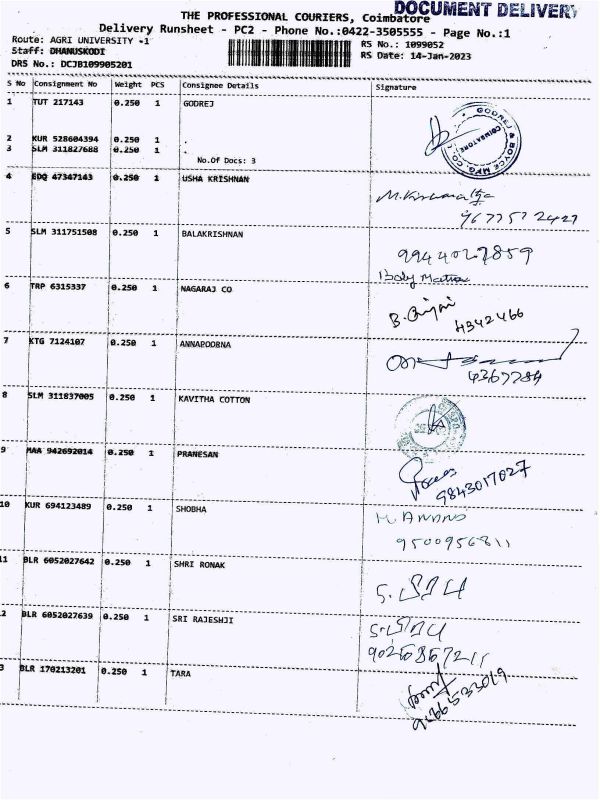 DOCUMENT DELIVERY
THE PROFESSIONAL COURIERS, Coimbatore
Delivery Runsheet - PC2 - Phone No.:0422-3505555 - Page No.:1
Route: AGRI UNIVERSITY -1 RS No.: 1099052
Staff: DHANUSKODI RS Date: 14-Jan-2023
DRS No.: DCJB109905201
S No Consignment No Weight PCS Consignee Details Signature
1 TUT 217143 0.250 1 GODREJ
GODREJ & BOYCE MFG. CO.
COIMBATORE
2 KUR 528604394 0.250 1 .
3 SLM 311827688 0.250 1 .
No.Of Docs: 3
4 EDQ 47347143 0.250 1 USHA KRISHNAN
5 SLM 311751508 0.250 1 BALAKRISHNAN
6 TRP 6315337 0.250 1 NAGARAJ CO
4342466
7 KTG 7124107 0.250 1 ANNAPOORNA
8 SLM 311837005 0.250 1 KAVITHA COTTON
9 MAA 942692014 0.250 1 PRANESAN
9843017027
10 KUR 694123489 0.250 1 SHOBHA
M. ANAND
9500956811
11 BLR 6052027642 0.250 1 SHRI RONAK
2 BLR 6052027639 0.250 1 SRI RAJESHJI
3 BLR 170213201 0.250 1 TARA